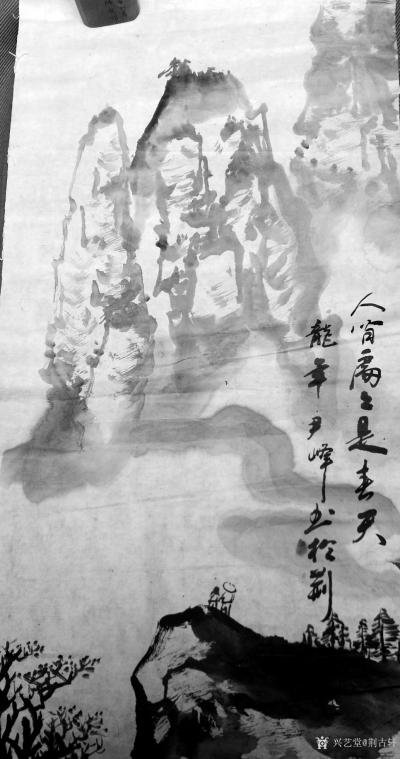 人间处处是春天
龍年尹峰书於荆
兴艺堂@荆古轩